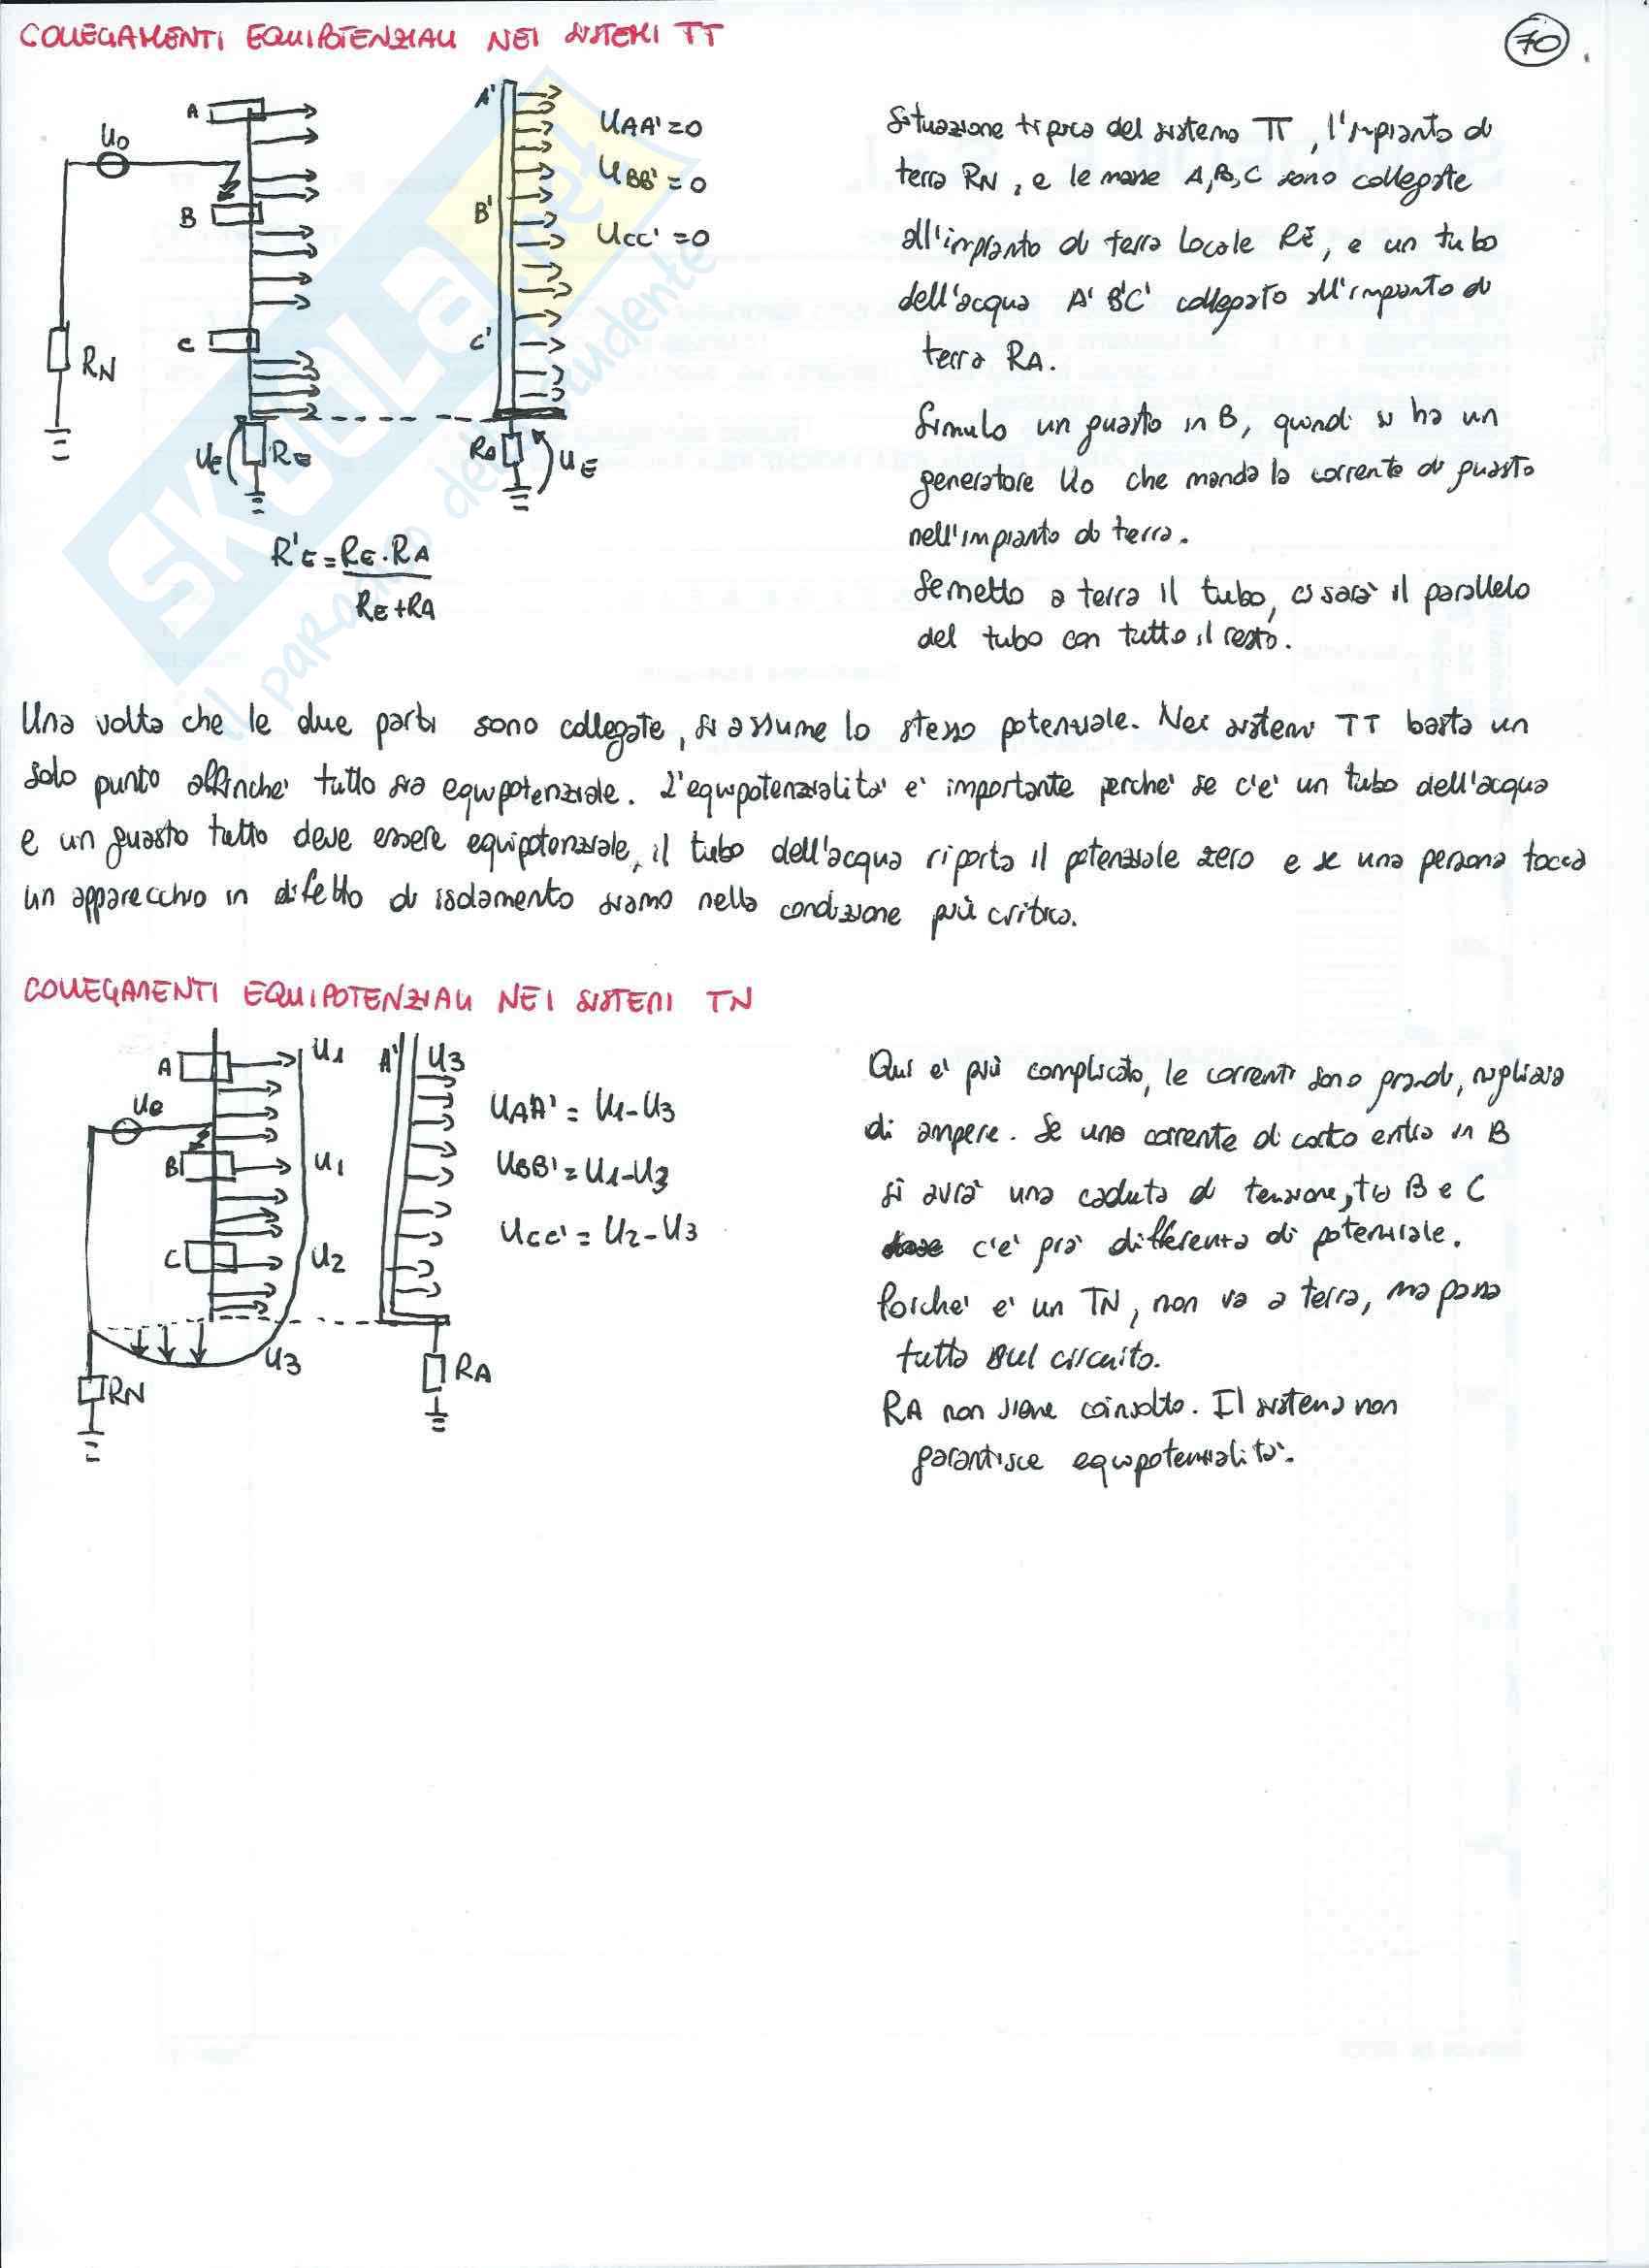 COLLEGAMENTI EQUIPOTENZIALI NEI SISTEMI TT
70
A
U0
B
C
RN
UE
RE
A'
B'
C'
RA
UE
UAA'=0
UBB'=0
UCC'=0
R'E = RE·RA
RE+RA
Situazione tipica del sistema TT, l'impianto di
terra RN, e le masse A,B,C sono collegate
all'impianto di terra locale RE, e un tubo
dell'acqua A' B'C' collegato all'impianto di
terra RA.
Simulo un guasto in B, quindi si ha un
generatore U0 che manda la corrente di guasto
nell'impianto di terra.
Se metto a terra il tubo, ci sarà il parallelo
del tubo con tutto il resto.
Una volta che le due parti sono collegate, si assume lo stesso potenziale. Nei sistemi TT basta un
solo punto affinché tutto sia equipotenziale. L'equipotenzialità è importante perché se c'è un tubo dell'acqua
e un guasto tutto deve essere equipotenziale, il tubo dell'acqua riporta il potenziale zero e se una persona tocca
un apparecchio in difetto di isolamento siamo nella condizione più critica.
COLLEGAMENTI EQUIPOTENZIALI NEI SISTEMI TN
A
U0
B
C
U1
U1
U2
U3
RN
A'
U3
RA
UAA' = U1-U3
UBB' = U1-U3
UCC' = U2-U3
Qui è più complicato, le correnti sono grandi, migliaia
di ampere. Se una corrente di corto entra in B
si avrà una caduta di tensione, tra B e C
c'è già differenza di potenziale.
Poiché è un TN, non va a terra, ma passa
tutta sul circuito.
RA non viene coinvolto. Il sistema non
garantisce equipotenzialità.
SKUOLA.net
il paradiso dello studente